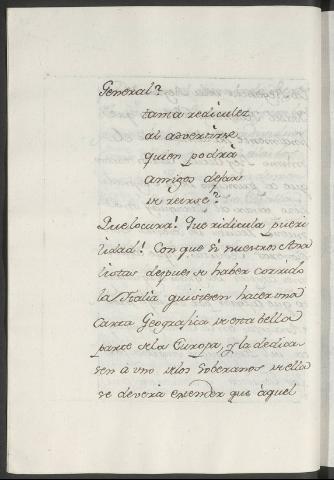 General?
tama rediculez
al advertirse
quien podrà
amigos dejar
de reirse?
Que locura! Que ridicula pueri
lidad! Con que si nuestros Ana
listas despues de haber corrido
la Italia quisieren hacer una
Carta Geografica de esta bella
parte dela Europa, y la dedica
sen à uno delos Soberanos de ella
se deverà entender que àquel